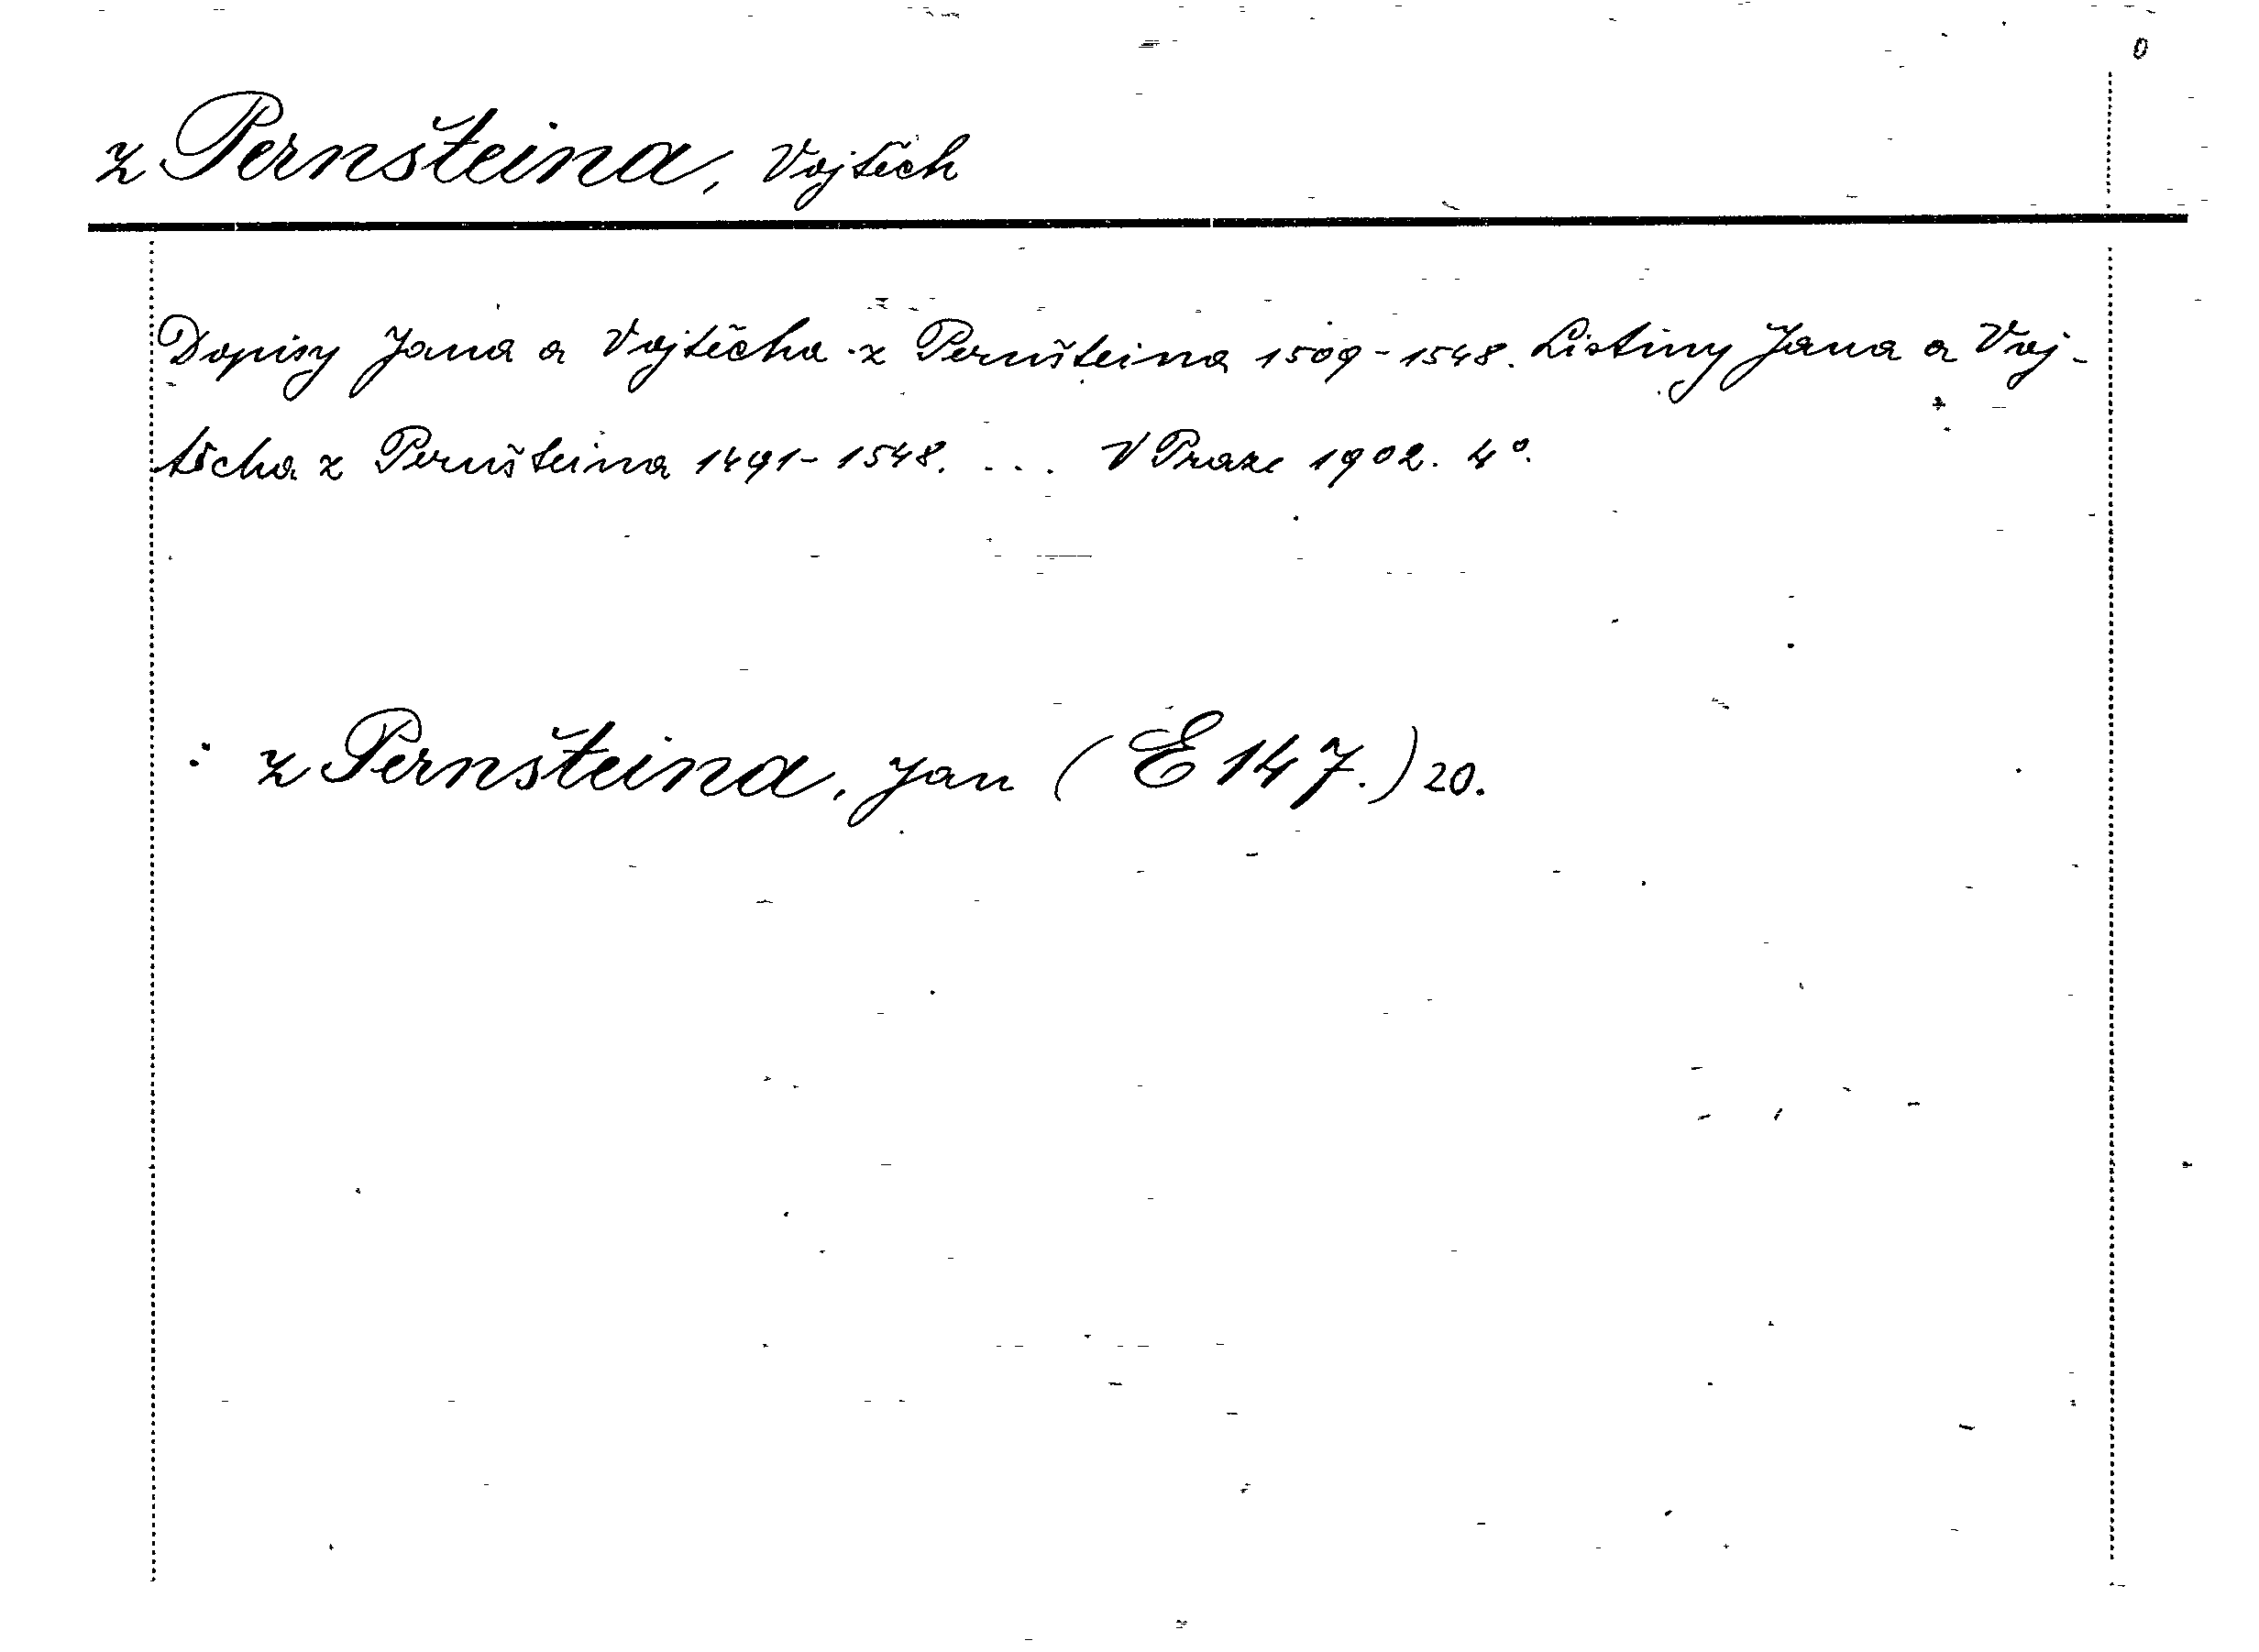 z Pernšteina, Vojtěch
Dopisy Jana a Vojtěcha z Pernšteina 1509-1548. Listiny Jana a Voj-
těcha z Pernšteina 1491-1548. ... V Praze 1902. 4°.
: z Pernšteina, Jan (E 147.) 20.